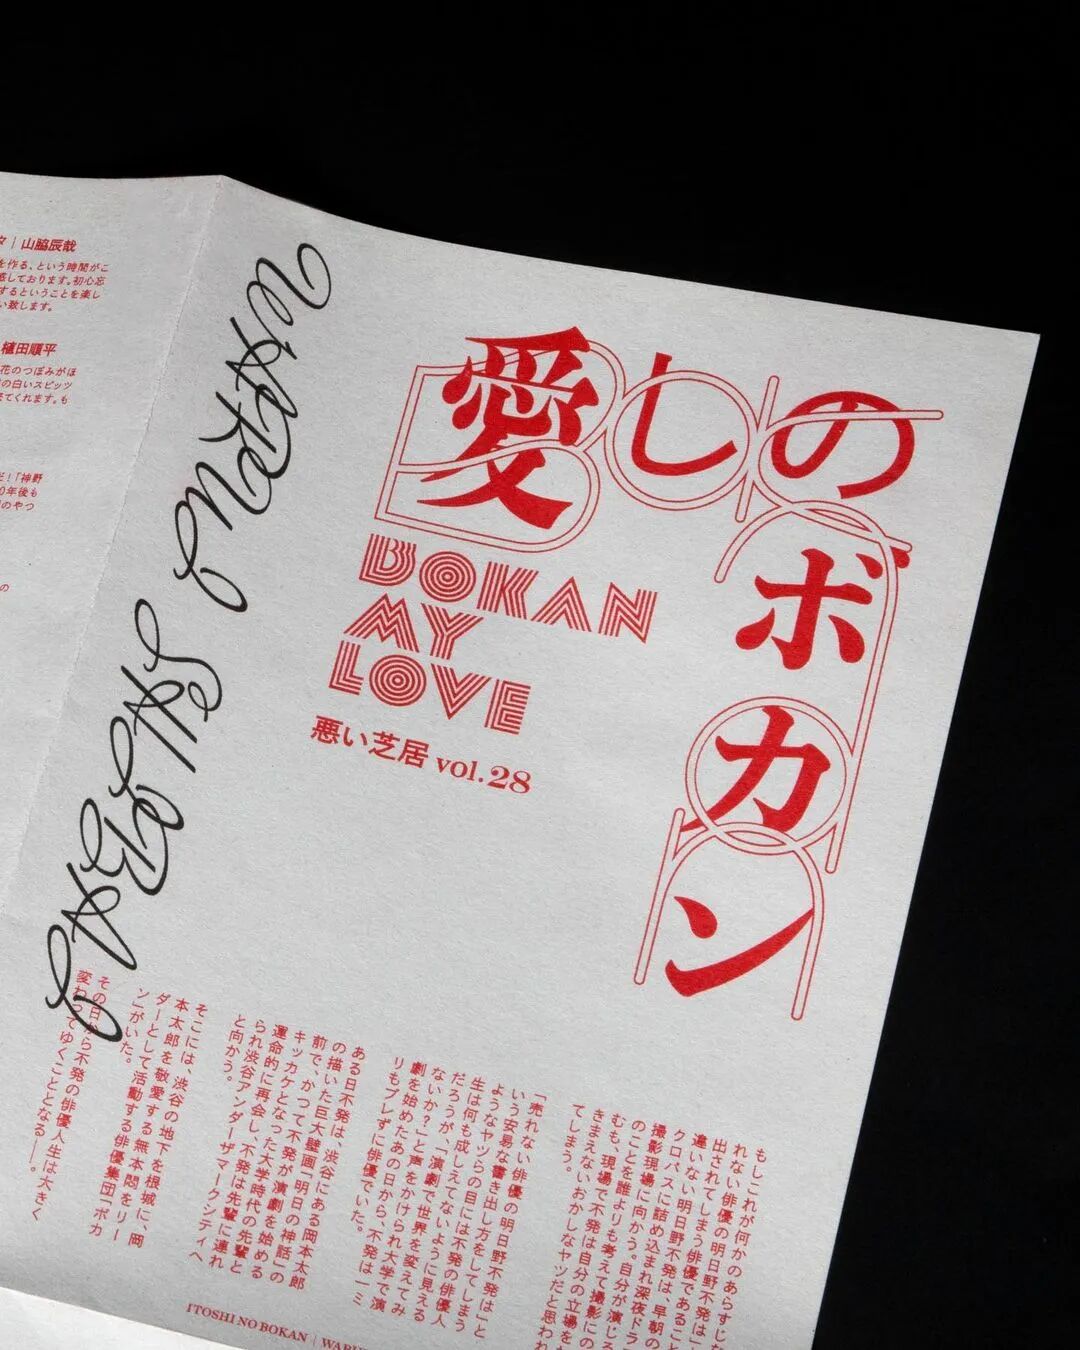 々｜山脇辰哉
を作る、という時間がこ
感しております。初心忘
するということを楽し
い致します。
植田順平
花のつぼみがほ
の白いスピッツ
てくれます。も
だ！「神野
0年後も
のやつ
の
WARUI SHIBAI
愛しのボカン
BOKAN
MY
LOVE
悪い芝居 vol.28
もしこれが何かのあらすじな
れない俳優の明日野不発は」
出されてしまう俳優であること
違いない明日野不発は、早朝の
クロバスに詰め込まれ深夜ドラ
撮影現場に向かう。自分が演じる
のことを誰よりも考えて撮影にの
むも、現場で不発は自分の立場を
きまえないおかしなヤツだと思われ
てしまう。
「売れない俳優の明日野不発は」と
いう安易な書き出し方をしてしまう
ようなヤツらの目には不発の俳優人
生は何も成しえてないように見える
だろうが、「演劇で世界を変えてみ
ないか？」と声をかけられ大学で演
劇を始めたあの日から、不発は一ミ
リもブレずに俳優でいた。
ある日不発は、渋谷にある岡本太郎
の描いた巨大壁画「明日の神話」の
前で、かつて不発が演劇を始める
キッカケとなった大学時代の先輩と
運命的に再会し、不発は先輩に連れ
られ渋谷アンダーザマークシティへ
と向かう。
そこには、渋谷の地下を根城に、岡
本太郎を敬愛する無本悶をリー
ダーとして活動する俳優集団「ボカ
ン」がいた。
その日から不発の俳優人生は大きく
変わってゆくこととなる――。
ITOSHI NO BOKAN｜WARU